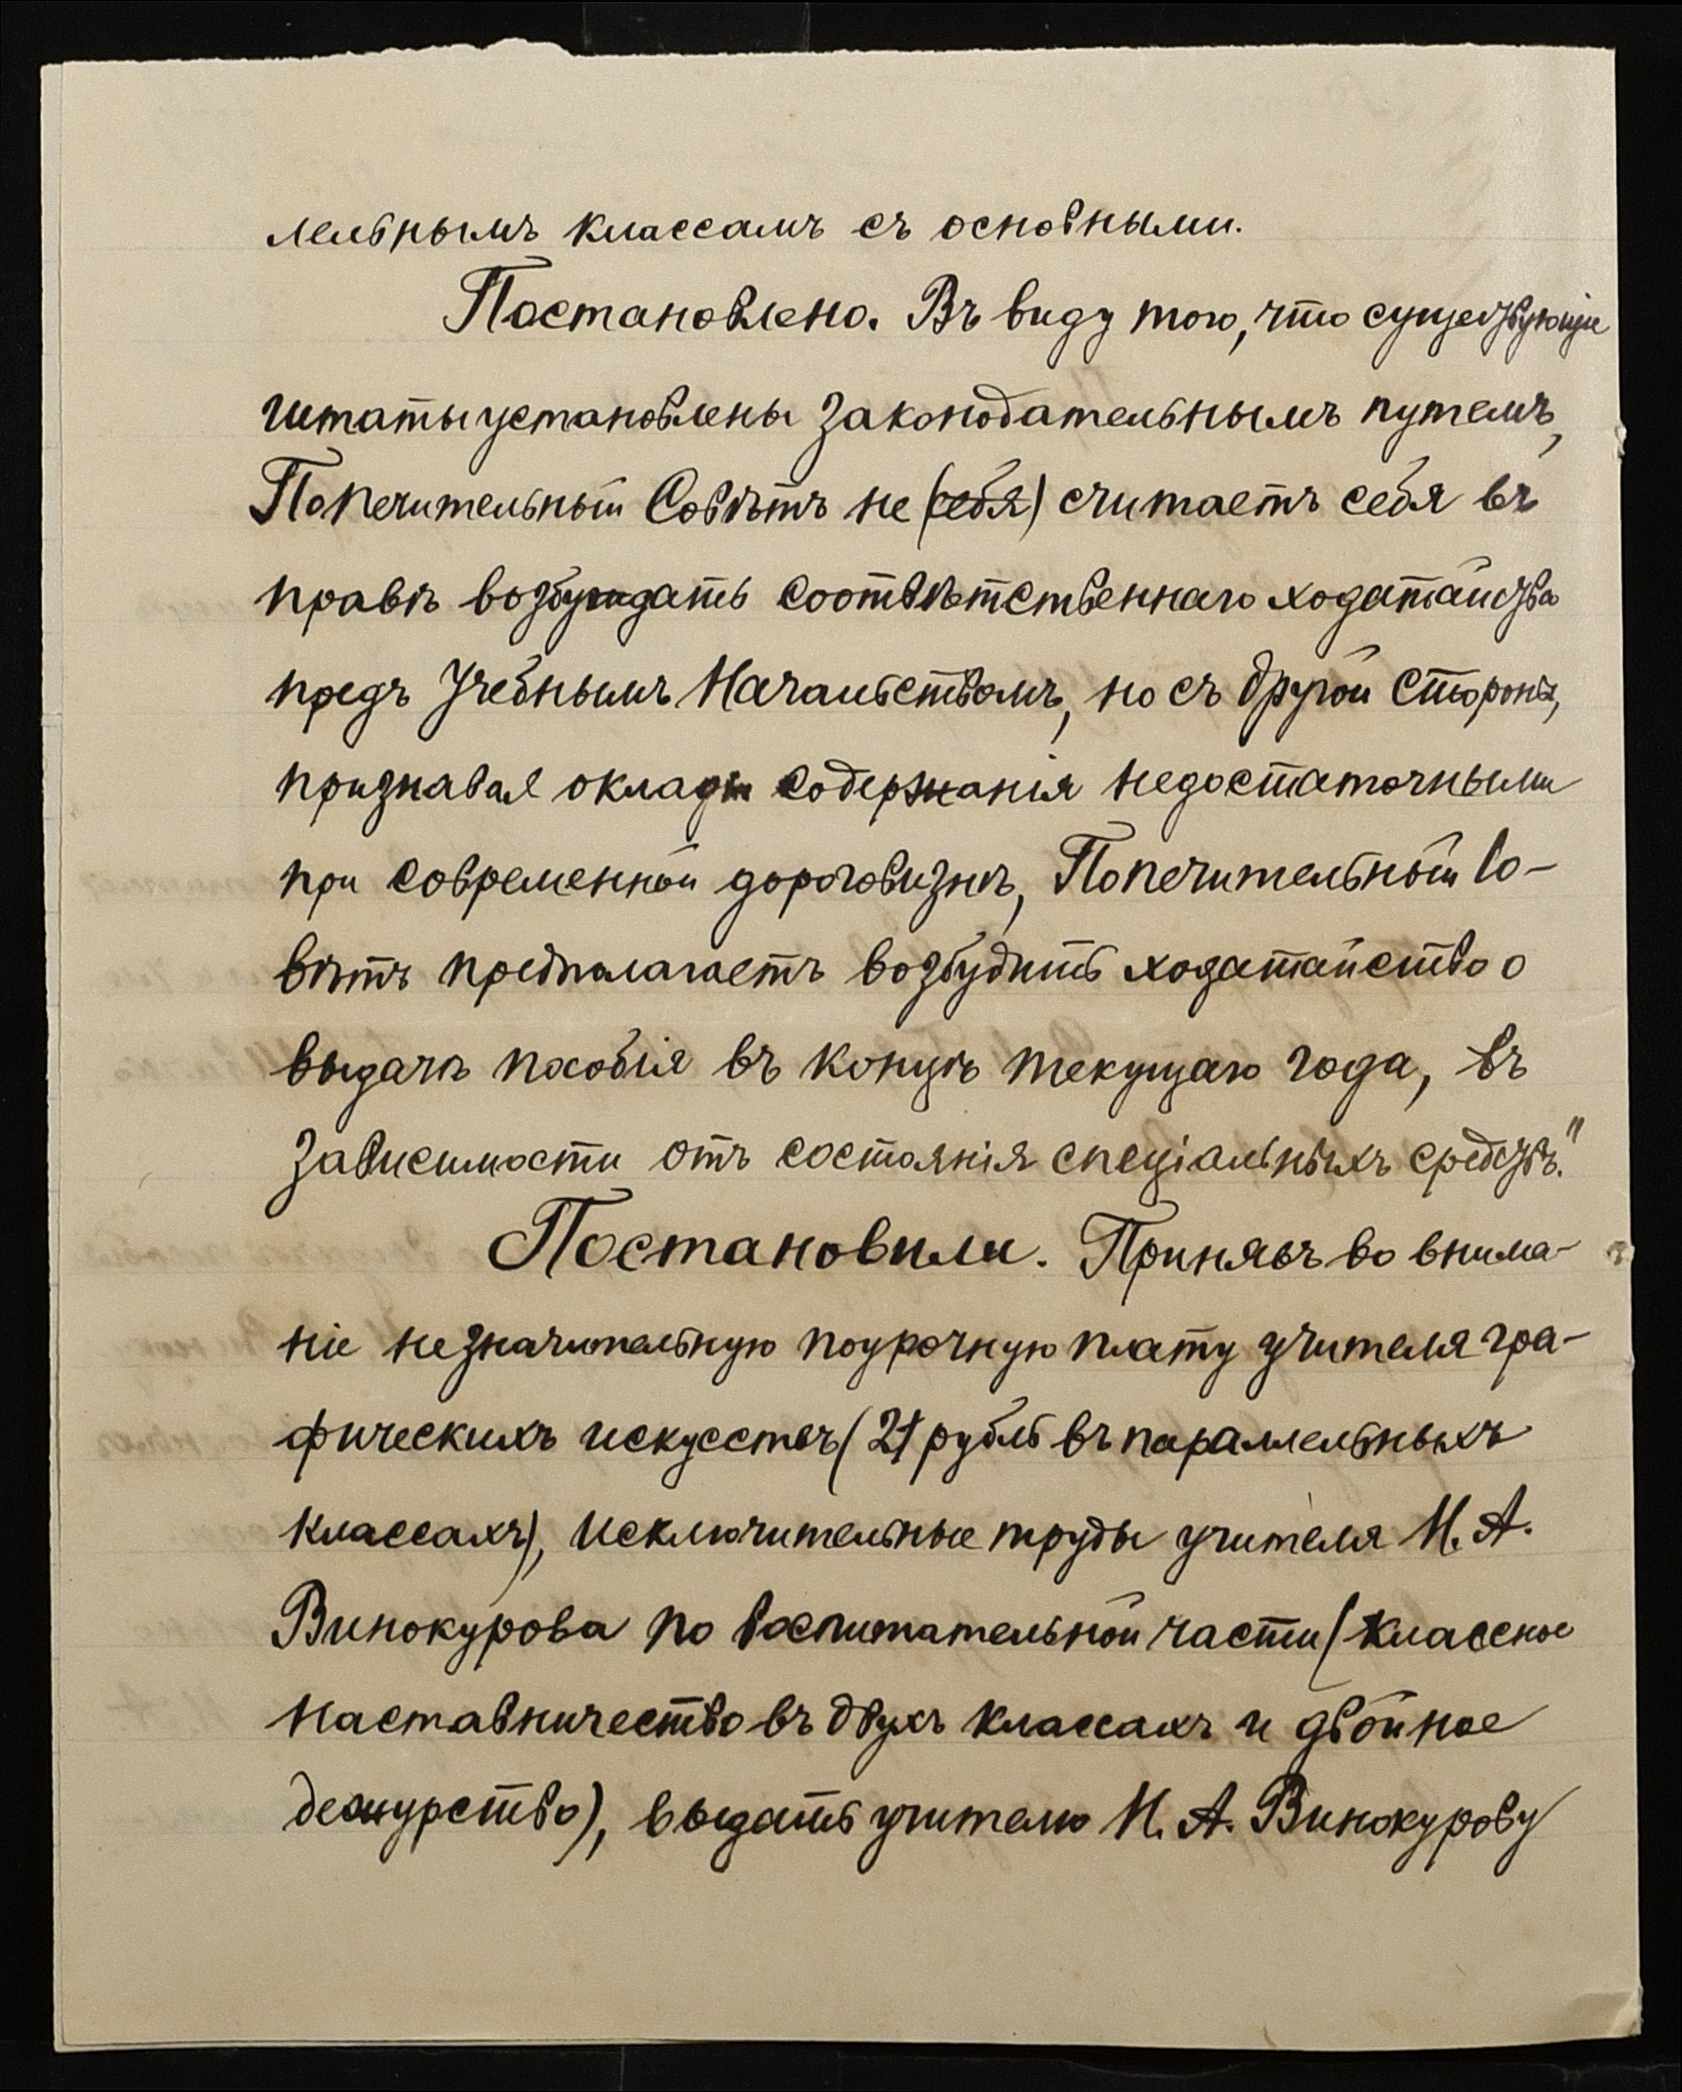 лельнымъ классамъ съ основными.
Постановлено. Въ виду того, что существующіе
штаты установлены законодательнымъ путемъ,
Попечительный Совѣтъ не (себя) считаетъ себя въ
правѣ возбуждать соотвѣтственнаго ходатайства
предъ Учебнымъ Начальствомъ, но съ другой стороны,
признавая оклады содержанія недостаточными
при современной дороговизнѣ, Попечительный Со-
вѣтъ предполагаетъ возбудить ходатайство о
выдачѣ пособія въ концѣ текущаго года, въ
зависимости отъ состоянія спеціальныхъ средствъ."
Постановили. Принявъ во внима-
ніе незначительную поурочную плату учителя гра-
фическихъ искусствъ (21 рубль въ параллельныхъ
классахъ), исключительные труды учителя И. А.
Винокурова по воспитательной части (классное
наставничество въ двухъ классахъ и двойное
дежурство), выдать учителю И. А. Винокурову